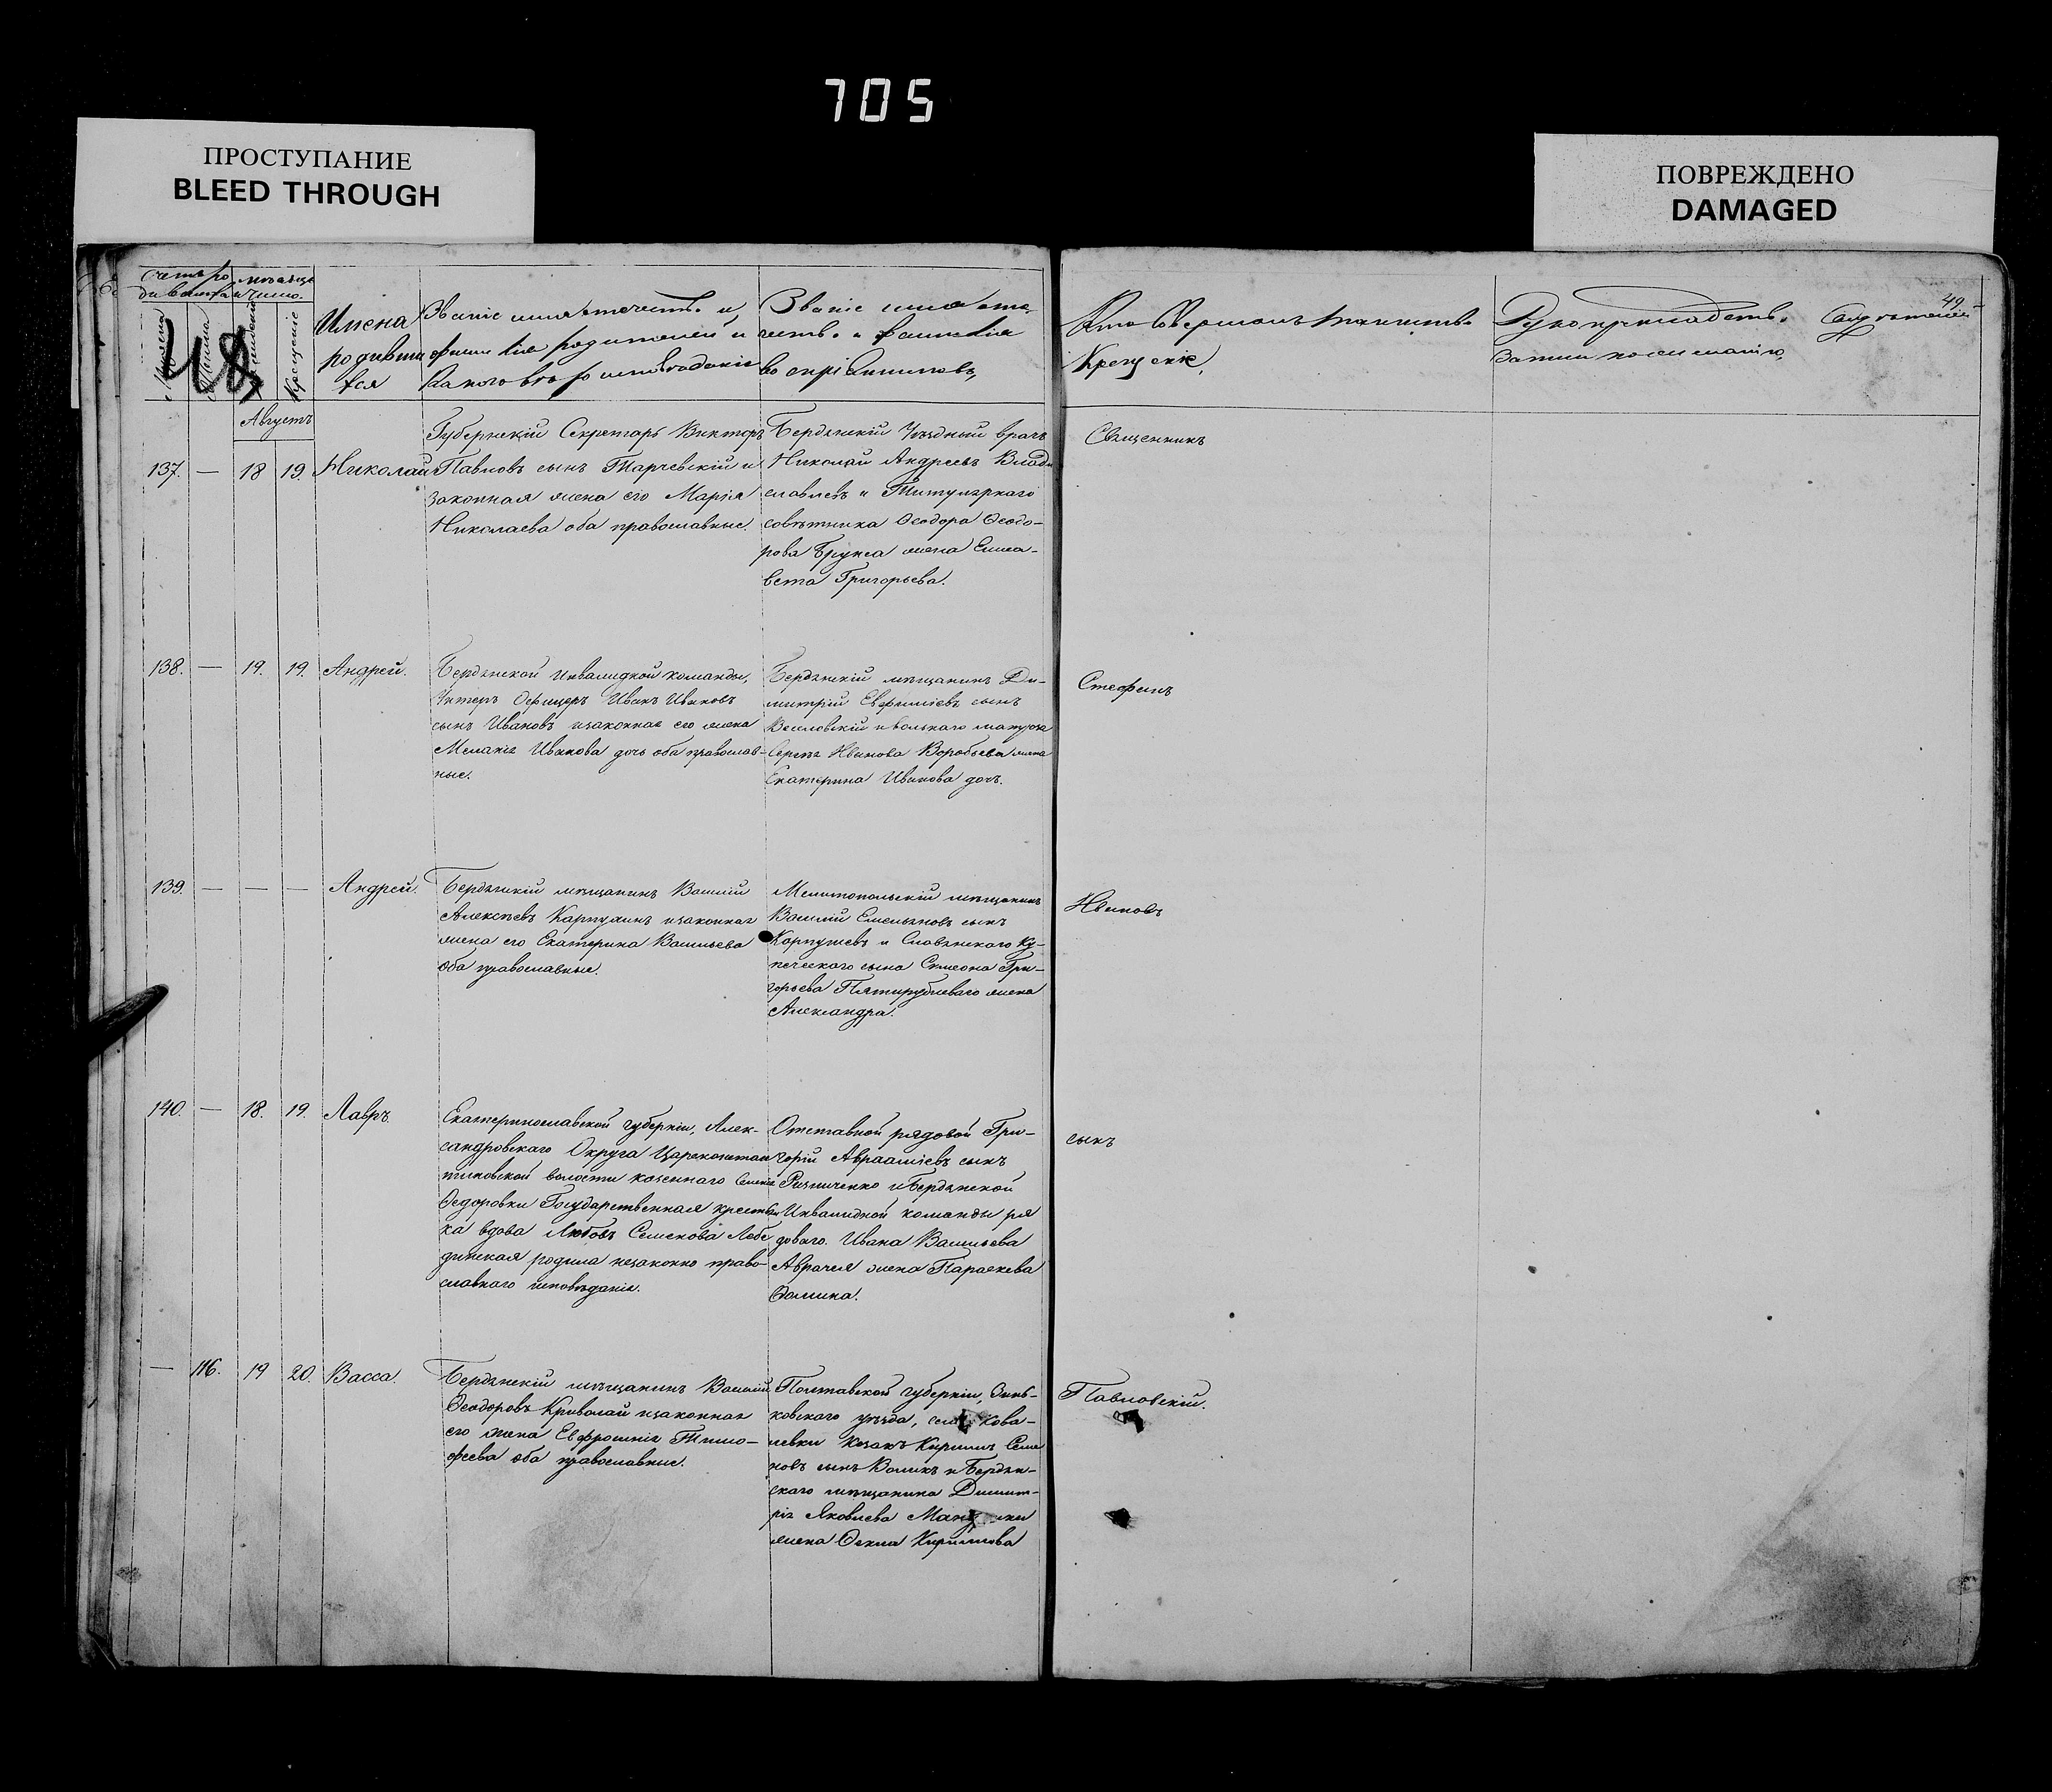 705
ПРОСТУПАНИЕ
BLEED THROUGH
ПОВРЕЖДЕНО
DAMAGED
49
Счетъ ро
дившихся
Мѣсяцъ
и число.
Крещеніе
48
Имена
родивши
хся
Званіе имя отечество и
фамиліе родителей и
какого вѣроисповѣданія
Званіе имя оте
чество и фамилія
воспріемниковъ
Кто совершалъ таинство
Крещенія
Рукоприкладство свидѣтелей
записи по желанію
Августъ
137. — 18 19. Николай
Губернскій Секретарь Викторъ
Павловъ сынъ Тарчевскій и
законная жена его Марія
Николаева оба православные.
Бердянскій Уѣздный врачъ
Николай Андреевъ Влади
славлевъ и Титулярнаго
совѣтника Ѳеодора Ѳеодо-
рова Брунса жена Елиса-
вета Григорьева.
Священникъ
138. — 19. 19. Андрей.
Бердянской Инвалидной команды,
Унтеръ Офицеръ Иванъ Ивановъ
сынъ Ивановъ и законная его жена
Меланія Иванова дочь оба православ-
ные.
Бердянскій мѣщанинъ Ди-
митрій Евфиміевъ сынъ
Веселовскій и вольнаго матроса
Сергѣя Иванова Воробьева жена
Екатерина Иванова дочь.
Стефанъ
139. — — — Андрей.
Бердянскій мѣщанинъ Василій
Алексѣевъ и законная
жена его Екатерина Васильева
оба православные.
Мелитопольскій мѣщанинъ
Василій Емельяновъ сынъ
Карпушевъ и Славянскаго ку-
печескаго сына Симеона Гри-
горьева Пятирублеваго жена
Александра.
Ивановъ
140. — 18. 19. Лавръ.
Екатеринославской губерніи, Алек-
сандровскаго Округа Царекостан
тиновской волости казеннаго селенія
Ѳедоровки Государственная крестьян
ка вдова Любовь Семенова Лебе
динская родила незаконно право-
славнаго исповѣданія.
Отставной рядовой Гри-
горій Авраамiевъ сынъ
Ризниченко и Бердянской
Инвалидной команды ря
доваго Ивана Васильева
жена Параскева
Ѳомина.
сынъ
— 116. 19 20. Васса.
Бердянскій мѣщанинъ Василій
Ѳеодоровъ Криволай и законная
его жена Евфросинія Тимо-
феева оба православные.
Полтавской губерніи, Зинь-
ковскаго уѣзда, села Кова-
левки Козакъ Кириллъ Семе
новъ сынъ Воликъ и Бердян-
скаго мѣщанина Димит-
рія Яковлева
жена Ѳекла Кириллова
Павловскій.